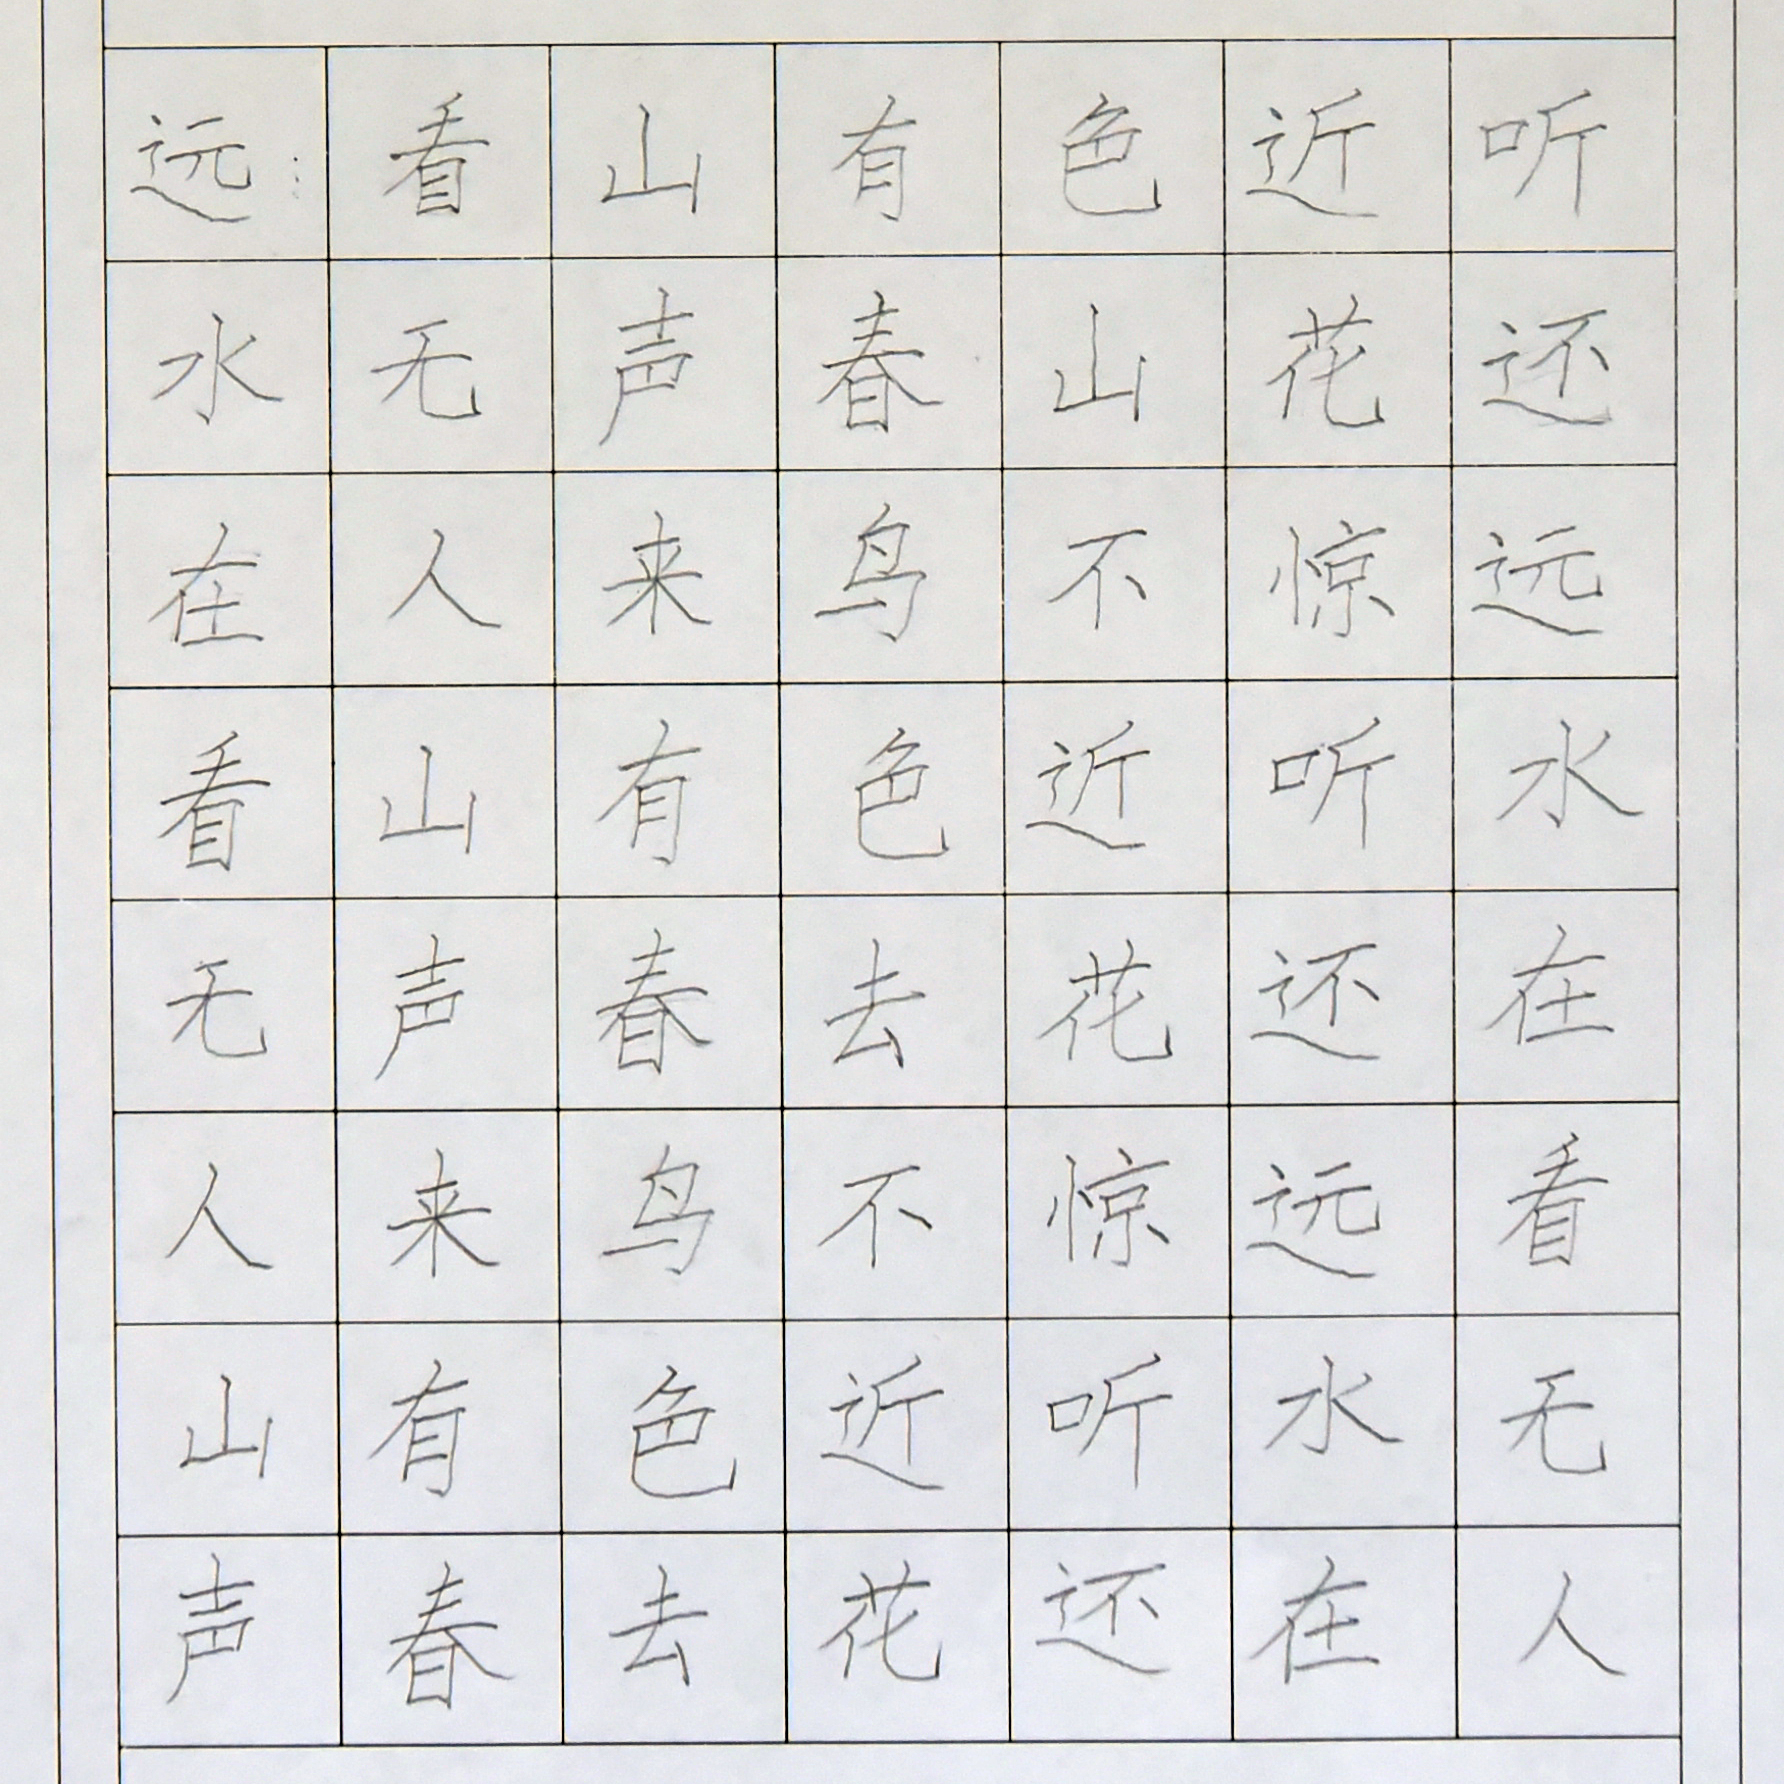 远看山有色近听
水无声春山花还
在人来鸟不惊远
看山有色近听水
无声春去花还在
人来鸟不惊远看
山有色近听水无
声春去花还在人